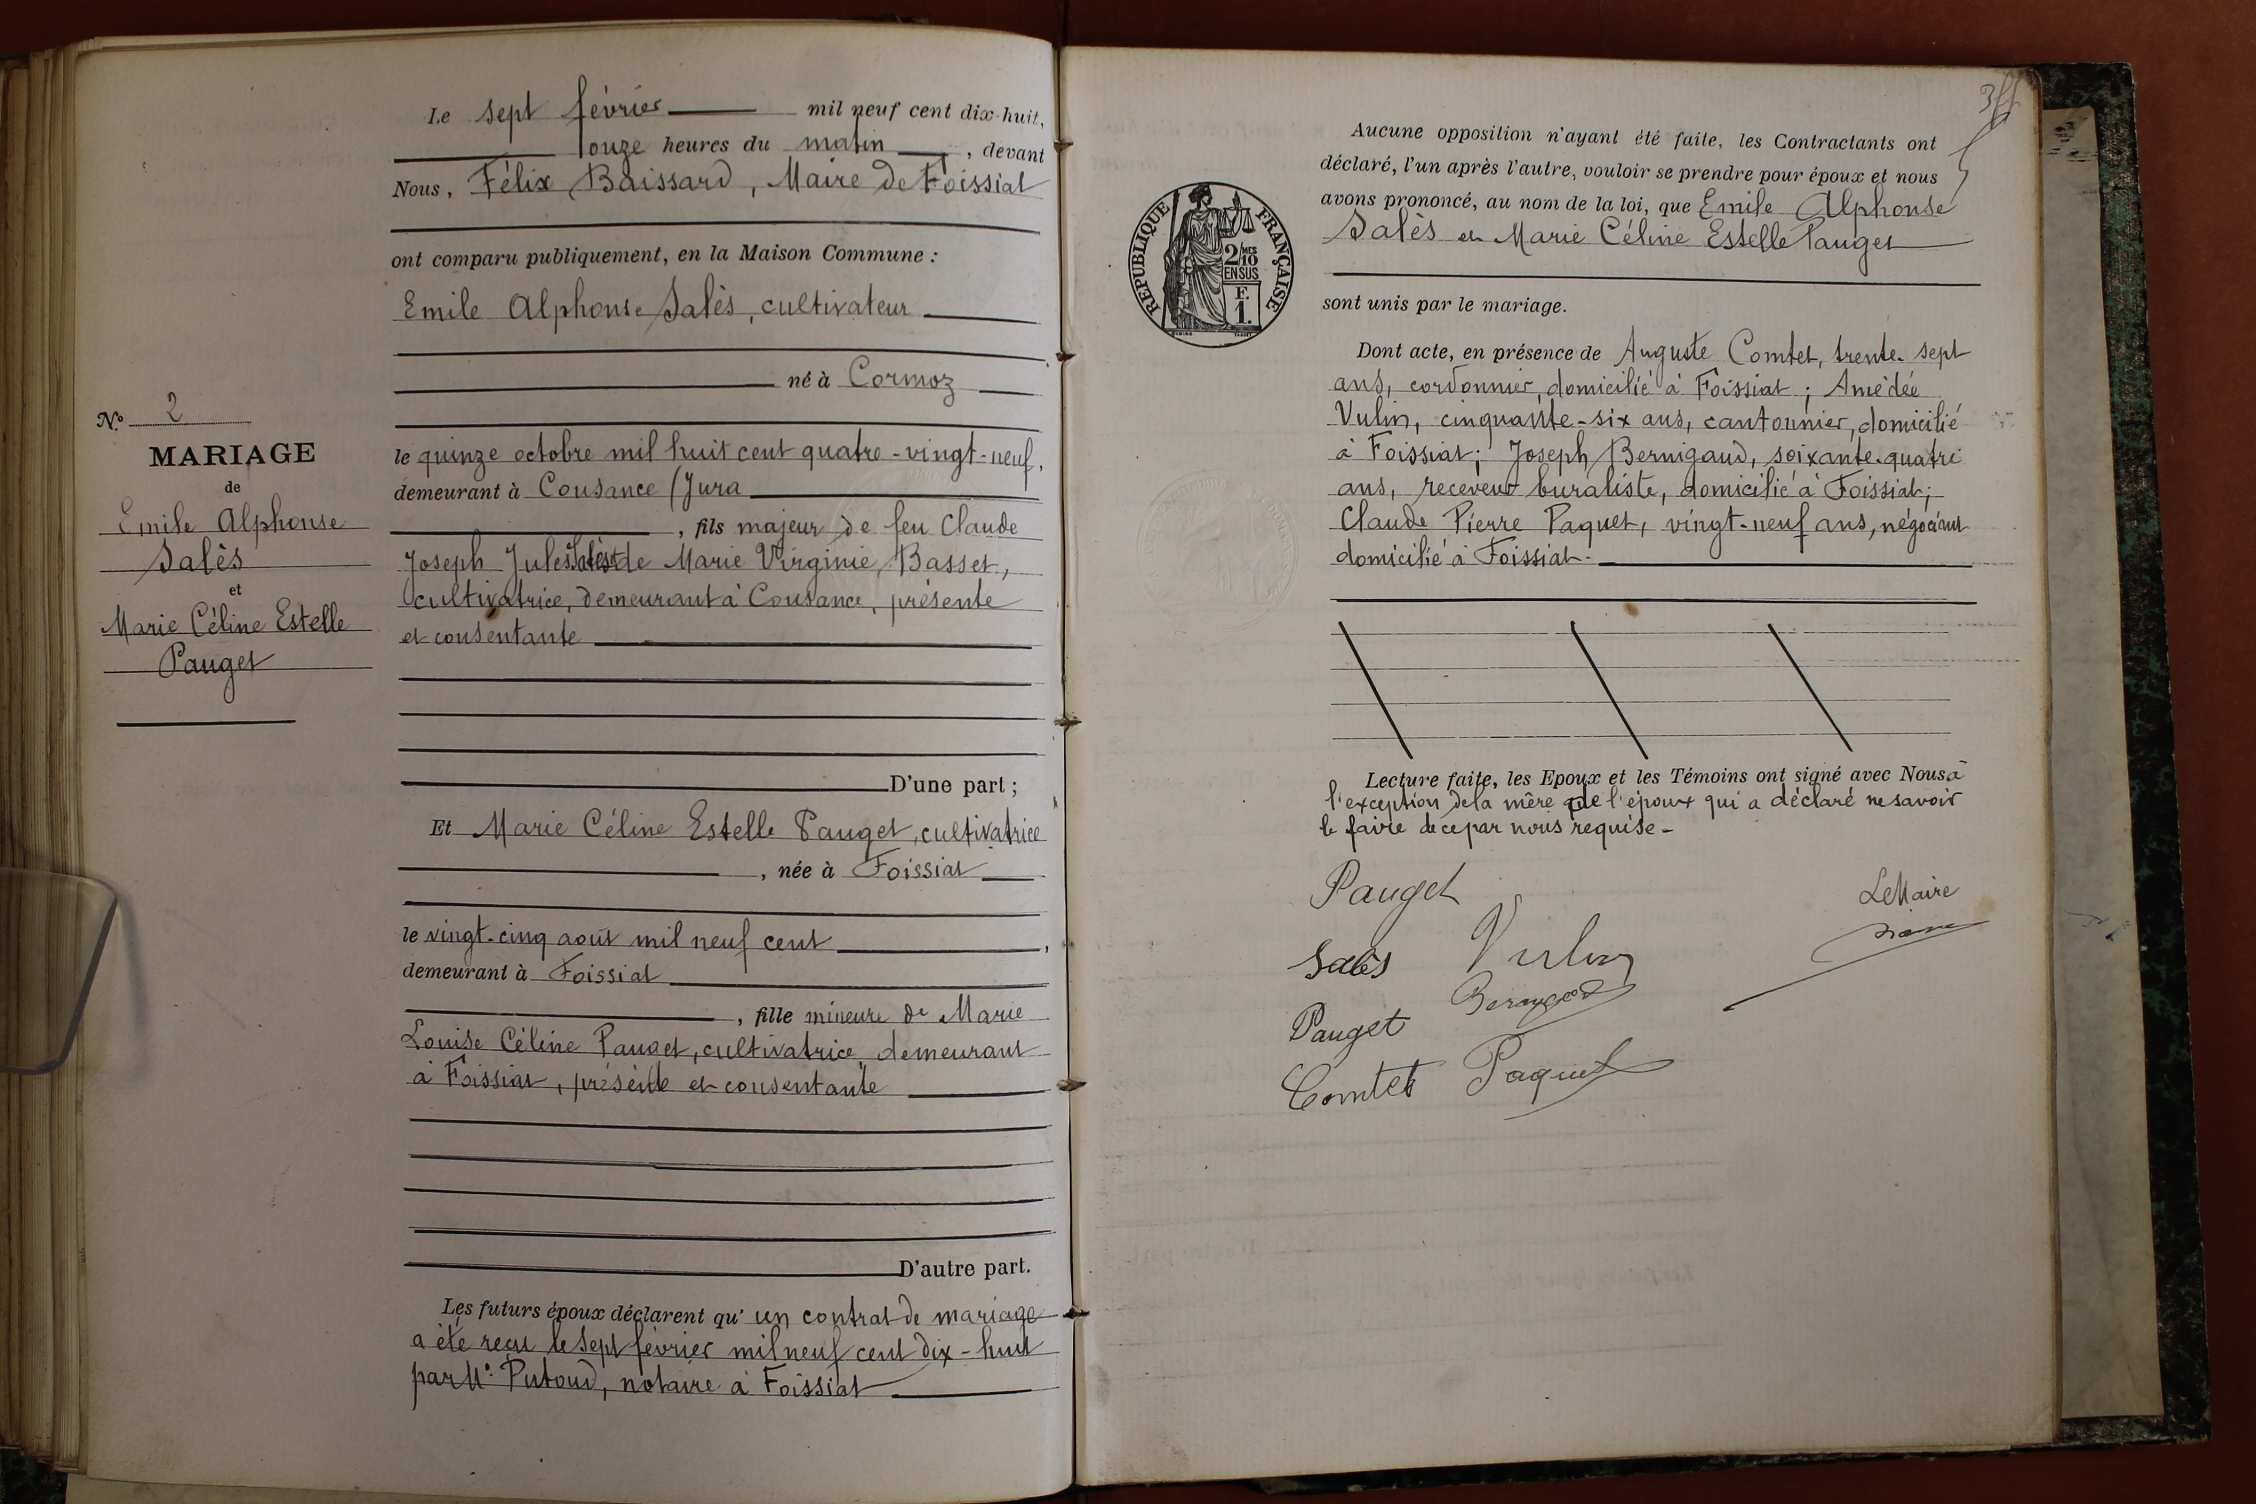 Le sept février mil neuf cent dix-huit,
onze heures du matin, devant
Nous, Félix Baissard, Maire de Foissiat
ont comparu publiquement, en la Maison Commune :
Emile Alphonse Salès, cultivateur
né à Cormoz
le quinze octobre mil huit cent quatre-vingt-neuf,
demeurant à Cousance (Jura
, fils majeur de feu Claude
Joseph Jules Salès et de Marie Virginie Basset,
cultivatrice, demeurant à Cousance, présente
et consentante
D'une part ;
Et Marie Céline Estelle Pauget, cultivatrice
, née à Foissiat
le vingt-cinq août mil neuf cent,
demeurant à Foissiat
, fille mineure de Marie
Louise Céline Pauget, cultivatrice, demeurant
à Foissiat, présente et consentante
D'autre part.
Les futurs époux déclarent qu'un contrat de mariage
a été reçu le sept février mil neuf cent dix-huit
par Me Putoud, notaire à Foissiat
N.o 2
MARIAGE
de
Emile Alphonse
Salès
et
Marie Céline Estelle
Pauget
Aucune opposition n'ayant été faite, les Contractants ont
déclaré, l'un après l'autre, vouloir se prendre pour époux et nous
avons prononcé, au nom de la loi, que Emile Alphonse
Salès et Marie Céline Estelle Pauget
sont unis par le mariage.
Dont acte, en présence de Auguste Comtet, trente-sept
ans, cordonnier, domicilié à Foissiat ; Amédée
Vulin, cinquante-six ans, cantonnier, domicilié
à Foissiat ; Joseph Bernigaud, soixante-quatre
ans, receveur buraliste, domicilié à Foissiat ;
Claude Pierre Paquet, vingt-neuf ans, négociant
domicilié à Foissiat.
Lecture faite, les Epoux et les Témoins ont signé avec Nous à
l'exception de la mère de l'époux qui a déclaré ne savoir
le faire de ce par nous requise -
Pauget
Le Maire
Salès Vulin
Pauget
Comtet Paquet
RÉPUBLIQUE FRANÇAISE
2/10 MES
EN SUS
F.
1.